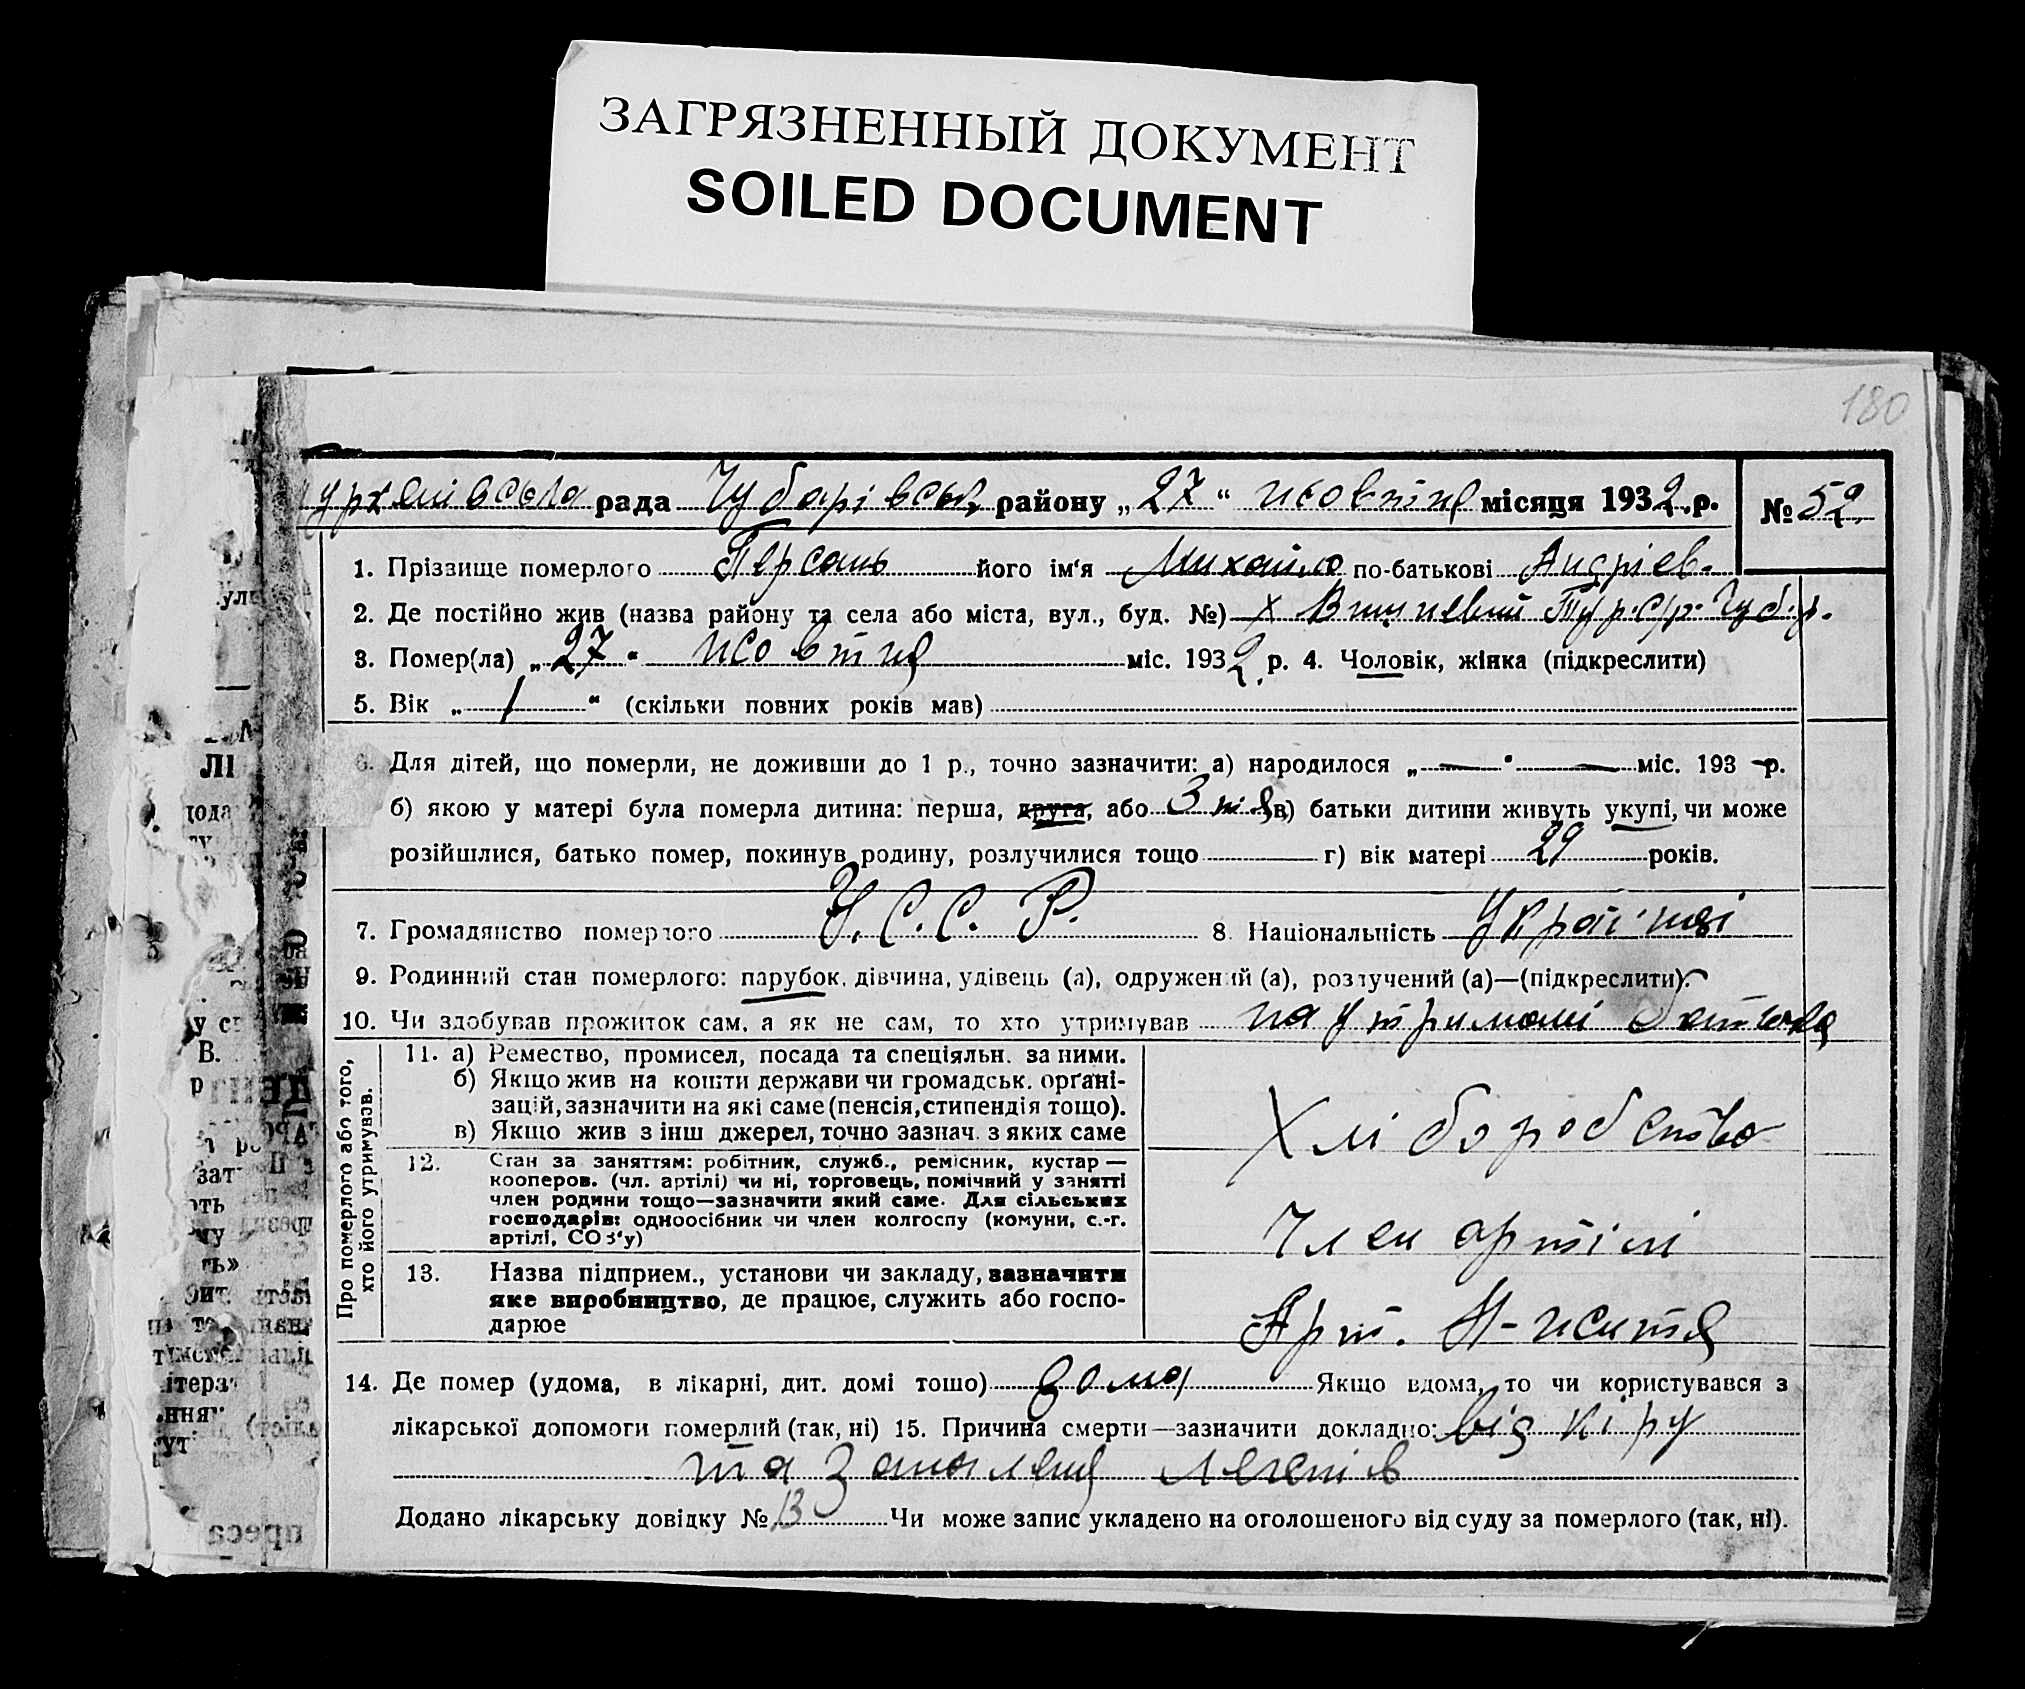 ЗАГРЯЗНЕННЫЙ ДОКУМЕНТ
SOILED DOCUMENT
180
рада Чубарівськ району „27“ жовтня місяця 1932 р. № 52
1. Прізвище померлого Персань його ім'я Михайло по-батькові Андріев.
2. Де постійно жив (назва району та села або міста, вул., буд. №) х Вишневий Тур. с/р. Чуб. р.
3. Помер(ла) „27“ жовтня міс. 1932 р. 4. Чоловік, жінка (підкреслити)
5. Вік „1“ (скільки повних років мав)
6. Для дітей, що померли, не доживши до 1 р., точно зазначити: а) народилося „—“ — міс. 193 — р.
б) якою у матері була померла дитина: перша, друга, або 3 тя в) батьки дитини живуть укупі, чи може
розійшлися, батько помер, покинув родину, розлучилися тощо г) вік матері 29 років.
7. Громадянство померлого У. С. С. Р. 8. Національність Україніці
9. Родинний стан померлого: парубок, дівчина, удівець (а), одружений (а), розлучений (а)—(підкреслити).
10. Чи здобував прожиток сам, а як не сам, то хто утримував на утримані батька
Про померлого або того, хто його утримував.
11. а) Ремество, промисел, посада та спеціяльн. за ними.
б) Якщо жив на кошти держави чи громадськ. орґані-
зацій, зазначити на які саме (пенсія, стипендія тощо).
в) Якщо жив з інш джерел, точно зазнач. з яких саме
Хліборобство
12. Стан за заняттям: робітник, служб., ремісник, кустар —
кооперов. (чл. артілі) чи ні, торговець, помічний у занятті
член родини тощо—зазначити який саме. Для сільських
господарів: одноосібник чи член колгоспу (комуни, с.-г.
артілі, СОЗ'у)
Член артілі
13. Назва підприєм., установи чи закладу, зазначити
яке виробництво, де працює, служить або госпо-
дарює
Арт. Н-життя
14. Де помер (удома, в лікарні, дит. домі тошо) дома Якщо вдома, то чи користувався з
лікарської допомоги померлий (так, ні) 15. Причина смерти—зазначити докладно: від кіру
та запаленя легенів
Додано лікарську довідку № 13 Чи може запис укладено на оголошеного від суду за померлого (так, ні).